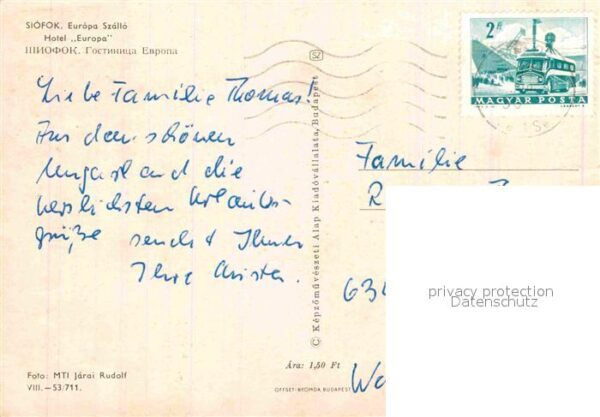 SIÓFOK. Európa Szálló
Hotel „Europa"
ШИОФОК. Гостиница Европа
Liebe Familie Thomas!
Aus dem schönen
Ungarland die
herzlichsten Urlaubs-
grüße sendet Ihnen
Ihre
Foto: MTI Járai Rudolf
VIII.—53/711.
SZ
© Képzőművészeti Alap Kiadóvállalata, Budapest
Ára: 1,50 Ft
OFFSET-NYOMDA BUDAPEST
2 Ft
MAGYAR POSTA
Familie
R
634
privacy protection
Datenschutz